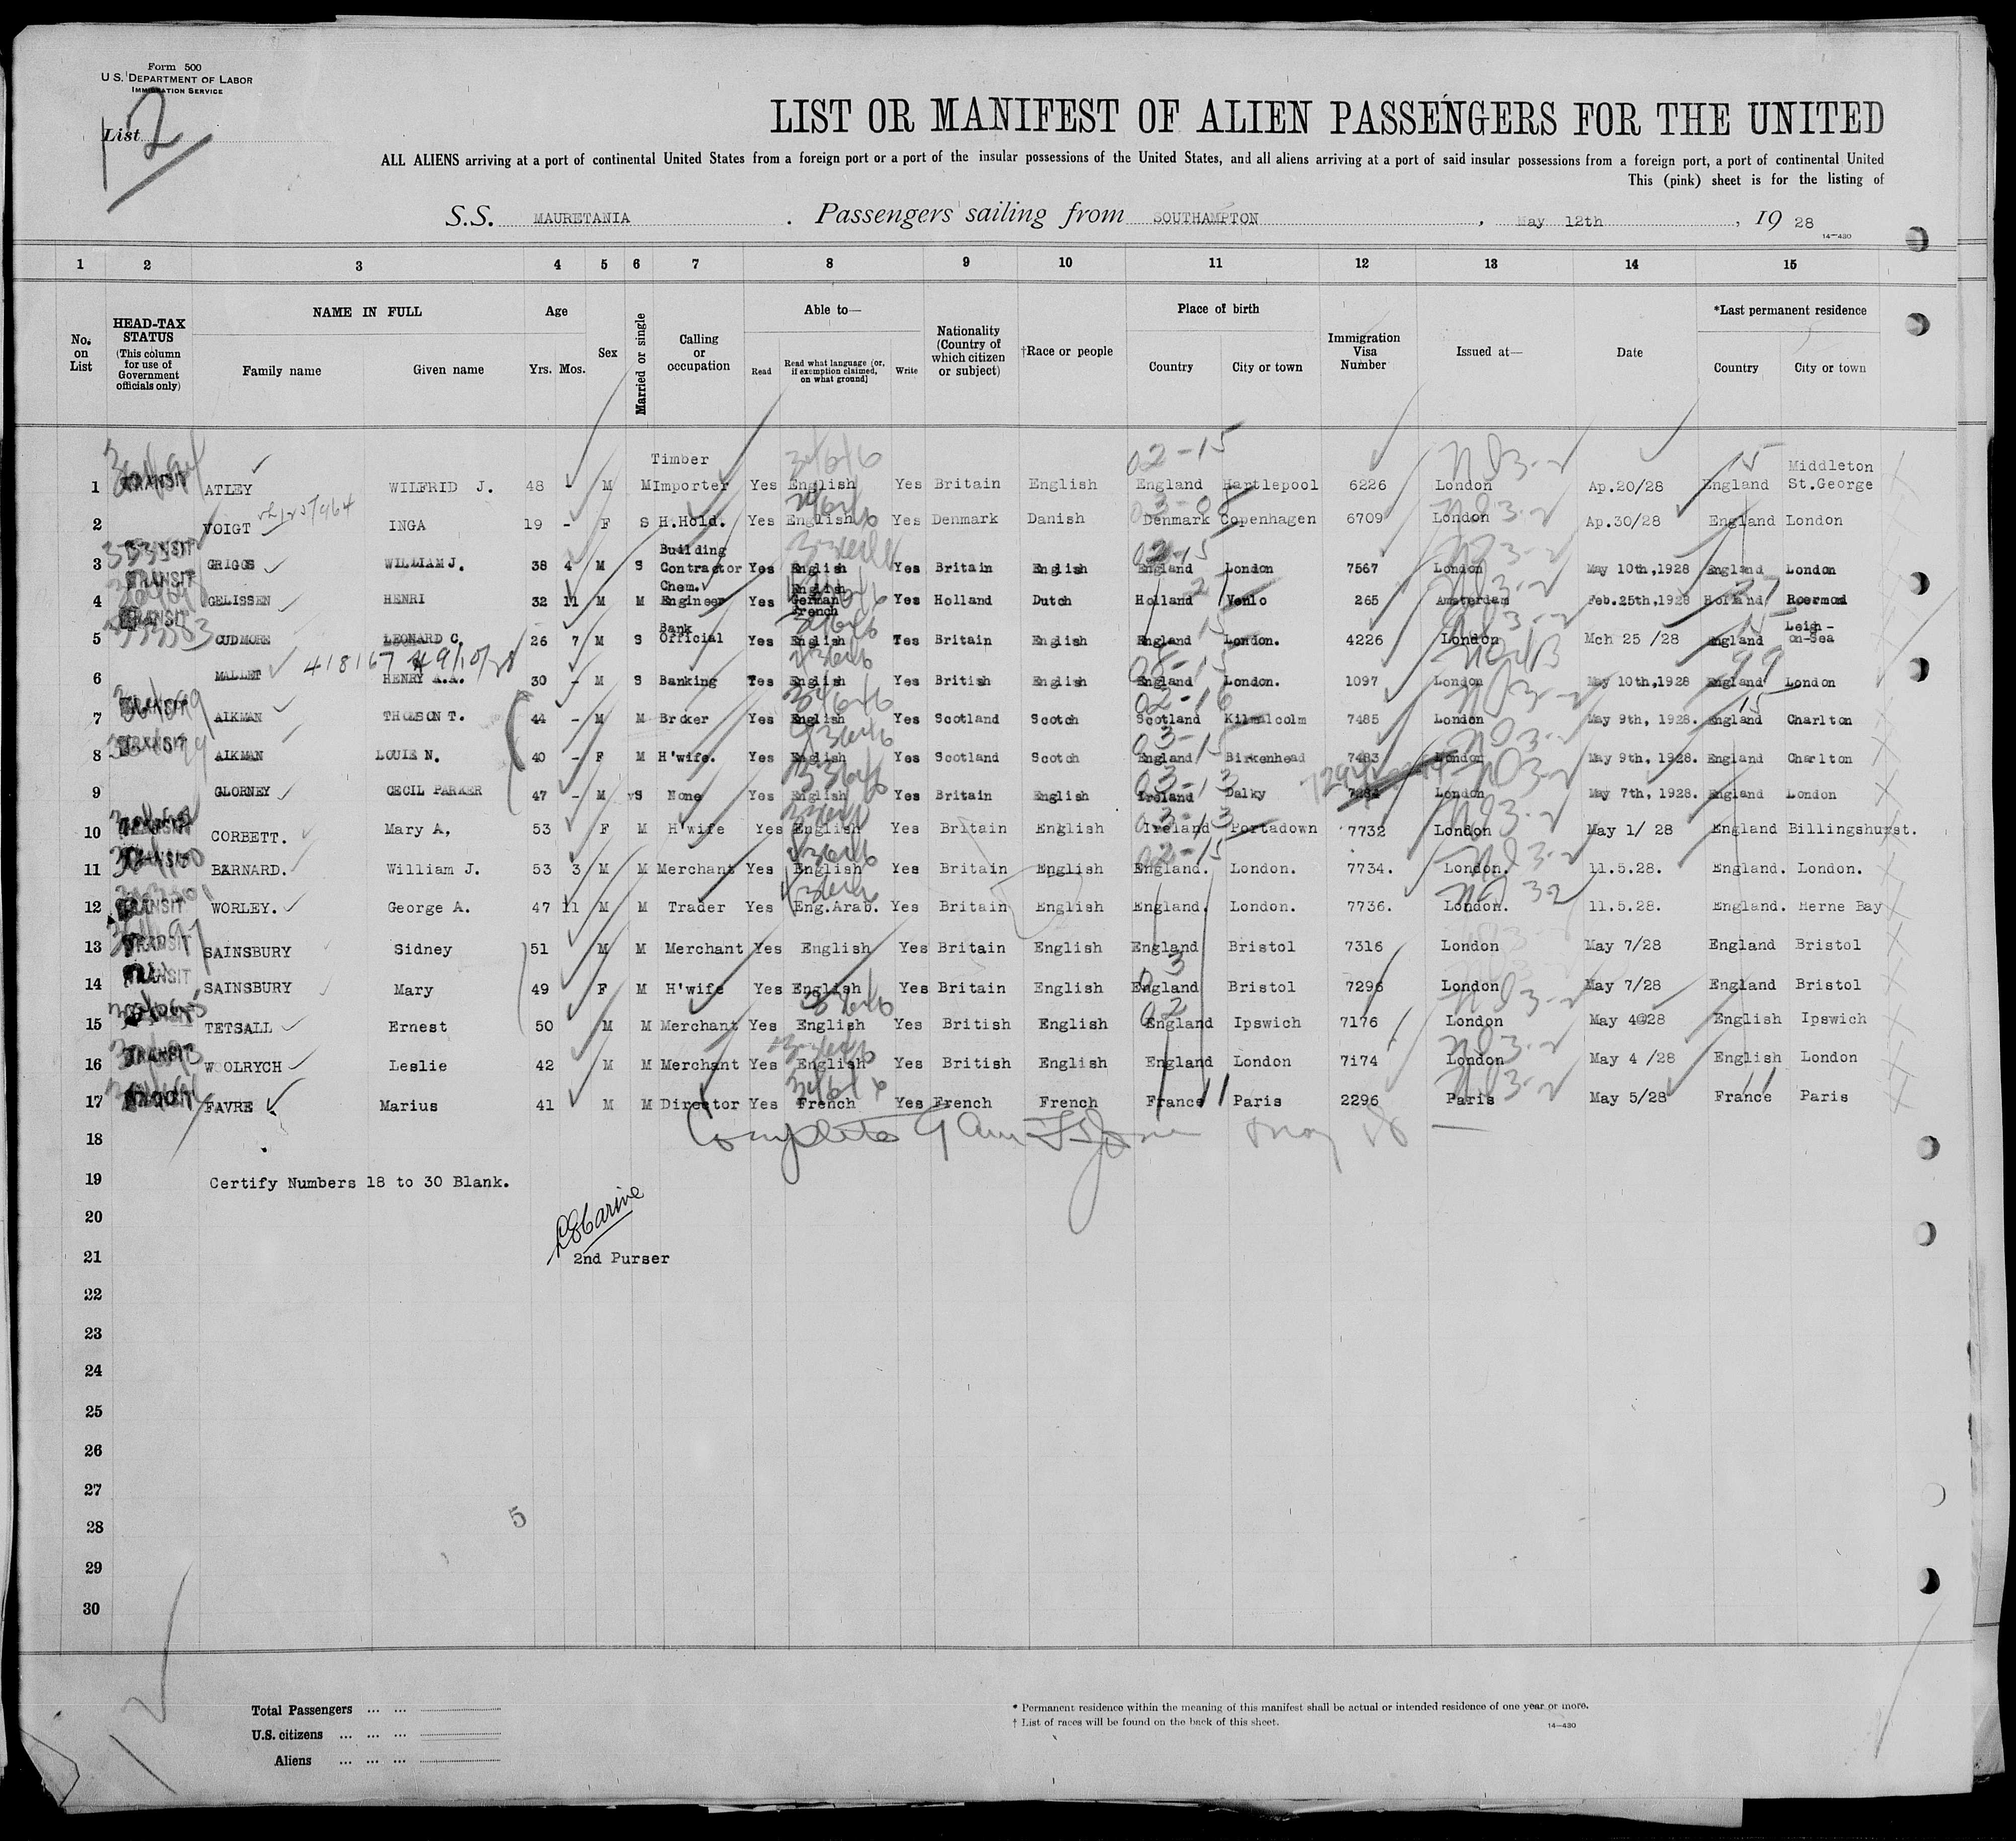 Form 500
U.S. DEPARTMENT OF LABOR
IMMIGRATION SERVICE
List 2
LIST OR MANIFEST OF ALIEN PASSENGERS FOR THE UNITED
ALL ALIENS arriving at a port of continental United States from a foreign port or a port of the insular possessions of the United States, and all aliens arriving at a port of said insular possessions from a foreign port, a port of continental United
This (pink) sheet is for the listing of
S.S. MAURETANIA . Passengers sailing from SOUTHAMPTON , May 12th , 19 28
14—430
1 2 3 4 5 6 7 8 9 10 11 12 13 14 15
No. on List
HEAD-TAX STATUS (This column for use of Government officials only)
NAME IN FULL
Family name Given name
Age
Yrs. Mos.
Sex
Married or single
Calling or occupation
Able to—
Read
Read what language (or, if exemption claimed, on what ground)
Write
Nationality (Country of which citizen or subject)
†Race or people
Place of birth
Country City or town
Immigration Visa Number
Issued at—
Date
*Last permanent residence
Country City or town
1 TRANSIT ATLEY WILFRID J. 48 - M M Timber Importer Yes English Yes Britain English England Hartlepool 6226 London Ap.20/28 England Middleton St.George
2 VOIGT INGA 19 - F S H.Hold. Yes English Yes Denmark Danish Denmark Copenhagen 6709 London Ap.30/28 England London
3 TRANSIT GRIGGS WILLIAM J. 38 4 M S Building Contractor Yes English Yes Britain English England London 7567 London May 10th,1928 England London
4 TRANSIT GELISSEN HENRI 32 11 M M Chem. Engineer Yes English German French Yes Holland Dutch Holland Venlo 265 Amsterdam Feb.25th,1928 Holland Roermond
5 TRANSIT CUDMORE LEONARD C. 26 7 M S Bank Official Yes English Yes Britain English England London. 4226 London Mch 25 /28 England Leigh-on-Sea
6 MALLET 418167 HENRY A.A. 30 - M S Banking Yes English Yes British English England London. 1097 London May 10th,1928 England London
7 TRANSIT AIKMAN THOMSON T. 44 - M M Broker Yes English Yes Scotland Scotch Scotland Kilmalcolm 7485 London May 9th, 1928. England Charlton
8 TRANSIT AIKMAN LOUIE N. 40 - F M H'wife. Yes English Yes Scotland Scotch England Birkenhead 7483 London May 9th, 1928. England Charlton
9 GLORNEY CECIL PARKER 47 - M S None Yes English Yes Britain English Ireland Dalky London May 7th, 1928. England London
10 TRANSIT CORBETT. Mary A, 53 F M H'wife Yes English Yes Britain English Ireland Portadown 7732 London May 1/ 28 England Billingshurst.
11 TRANSIT BARNARD. William J. 53 3 M M Merchant Yes English Yes Britain English England. London. 7734. London. 11.5.28. England. London.
12 TRANSIT WORLEY. George A. 47 11 M M Trader Yes Eng.Arab. Yes Britain English England. London. 7736. London. 11.5.28. England. Herne Bay
13 TRANSIT SAINSBURY Sidney 51 M M Merchant Yes English Yes Britain English England Bristol 7316 London May 7/28 England Bristol
14 TRANSIT SAINSBURY Mary 49 F M H'wife Yes English Yes Britain English England Bristol 7296 London May 7/28 England Bristol
15 TETSALL Ernest 50 M M Merchant Yes English Yes British English England Ipswich 7176 London May 4@28 English Ipswich
16 TRANSIT WOOLRYCH Leslie 42 M M Merchant Yes English Yes British English England London 7174 London May 4 /28 English London
17 FAVRE Marius 41 M M Director Yes French Yes French French France Paris 2296 Paris May 5/28 France Paris
18
19 Certify Numbers 18 to 30 Blank.
20
21 2nd Purser
22
23
24
25
26
27
28
29
30
5
Total Passengers ... ...
U.S. citizens ... ... ...
Aliens ... ... ...
* Permanent residence within the meaning of this manifest shall be actual or intended residence of one year or more.
† List of races will be found on the back of this sheet.
14—430